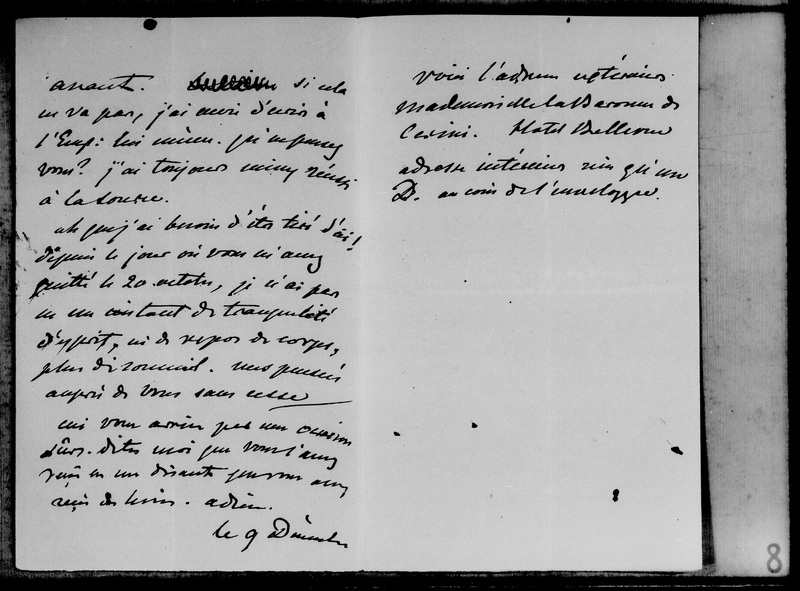 avant. si cela
ne va pas, j'ai envie d'écrire à
l'Emp: lui même. qu'en pensez
vous? j'ai toujours mieux réussi
à la source.
ah que j'ai besoin d'être tiré d'ici!
depuis le jour où vous m'avez
quitté le 20 octobre, je n'ai pas
eu un instant de tranquilité
d'esprit, ni de repos de corps,
plus de sommeil. mes pensées
auprès de vous sans cesse
vous arrive par une occasion
sûre. dites moi que vous l'avez
reçu en me disant que vous avez
reçu des livres. adieu.
le 9 Décembre
voici l'adresse extérieure.
Mademoiselle la Baronne de
Cesini. Hotel Bellevue
adresse intérieure rien qu'un
D. au coin de l'enveloppe.
8